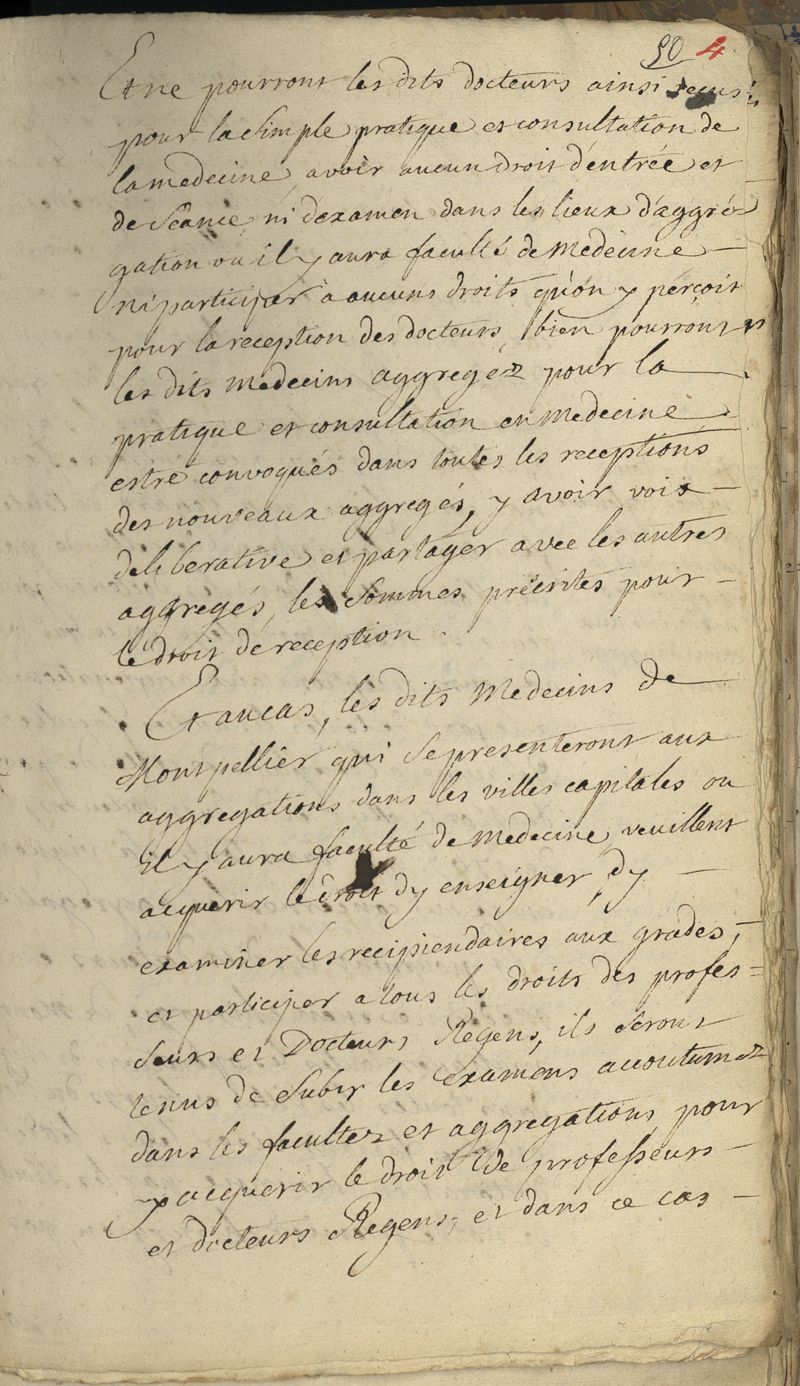 90 4
Et ne pourront les dits docteurs ainsi recus
pour la simple pratique et consultation de
la medecine, avoir aucun droit d'entrée et
de séance, ni d'examen dans les lieux d'aggré=
gation ou il y aura faculté de Medecine —
ni participer à aucuns droits qu'on y perçoit
pour la reception des docteurs, bien pourront
les dits medecins aggregéz pour la —
pratique et consultation en medecine
estre convoqués dans toutes les receptions
des nouveaux aggregés, y avoir voix —
deliberative et partager avec les autres
aggregés, les sommes préscrites pour —
le droit de reception.
Et au cas, les dits Medecins de —
Montpellier qui se presenteront aux
aggregations dans les villes capitales ou
il y aura faculté de medecine, veuillent
acquerir le droit d'y enseigner, d'y —
examiner les recipiendaires aux grades, —
et participer a tous les droits des profes=
seurs et Docteurs Regens, ils seront
tenus de subir les examens accoutumez
dans les facultez et aggregations, pour
y acquerir le droit de professeurs —
et docteurs Regens, et dans ce cas —